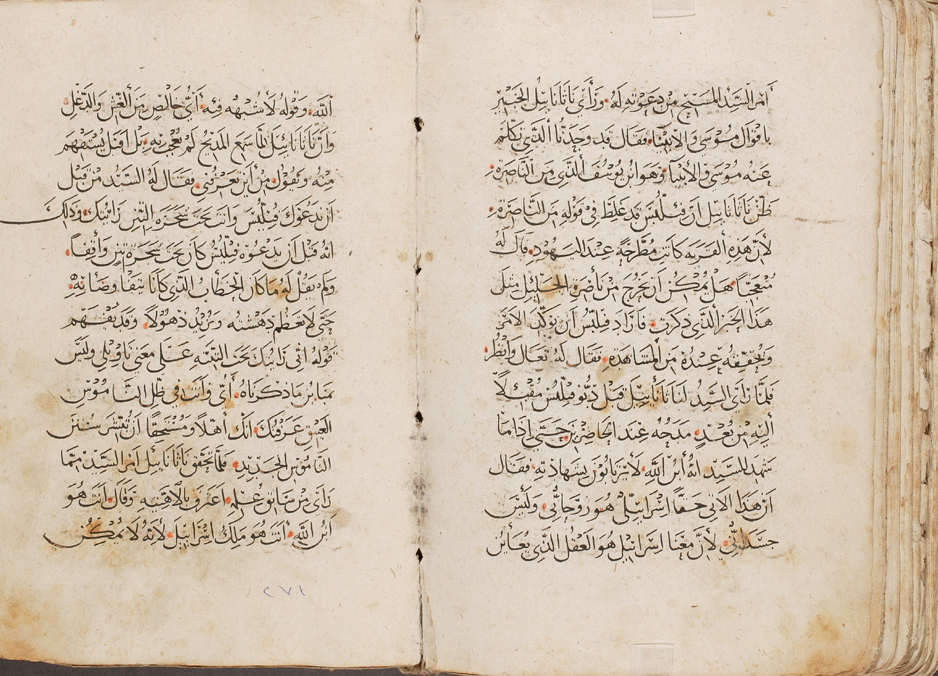 امر السيد المسيح من دعوته له وراى ناثانائيل الخبير
باقوال موسى والانبيا فقال قد وجدنا الذي تكلم
عنه موسى والانبيا وهو ابن يوسف الذي من الناصره
ظن ناثانائيل ان فيلبس قد غلط في قوله من الناصره
لان هذه القريه كانت مطرحة عند اليهود قال له
متعجبا هل يمكن ان يخرج من ناصرة الجليل مثل
هذا الخبر الذي ذكرت فاراد فيلبس ان يؤكد الامر
وتحقيقه عنده من المشاهده فقال له تعال وانظر
فلما راى السيد لنا ناثانائيل قبل فيلبس مقبلا
اليه من بعد مدحه عند الحاضرين حتى اذا ما
شهد للسيد انه ابن الله لا يرتابون بشهادته فقال
ان هذا الاتي حقا اسرائيلي هو روحاني وليس
جسداني لان معنا اسرائيل هو العقل الذي يعاين
الله وقوله لا شبهه فيه اي خالص من الغش والدغل
وان ناثانائيل لما سمع المديح لم يعجب به بل اقبل يستفهم
منه ويقول من اين تعرفني فقال له السيد من قبل
ان يدعوك فيلبس وانت تحت شجرة التين رايتك وذلك
انه قبل ان يدعوه فيلبس كان تحت شجرة تين واقفا
ولم يقل له ما كان الخطاب الذي كانا يتفاوضانه
حتى لا تعظم دهشته ويزيد ذهولا وقد يفهم
قوله اني رايتك تحت التينه على معنى تاويلي وليس
مما ذكرناه اي وانت في ظل الناموس
العتيق عرفتك انك اهلا ومستحقا ان تتشر بسنن
الناموس الجديد فلما تحقق ناثانائيل امر السيد مما
راى من سابق علمه اعترف بالاهيته وقال انت هو
ابن الله انت هو ملك اسرائيل لانه لا يمكن
٢٧١